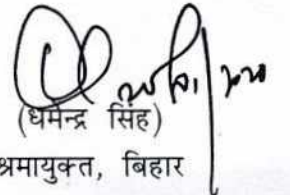 (धर्मेन्द्र सिंह)
श्रमायुक्त, बिहार